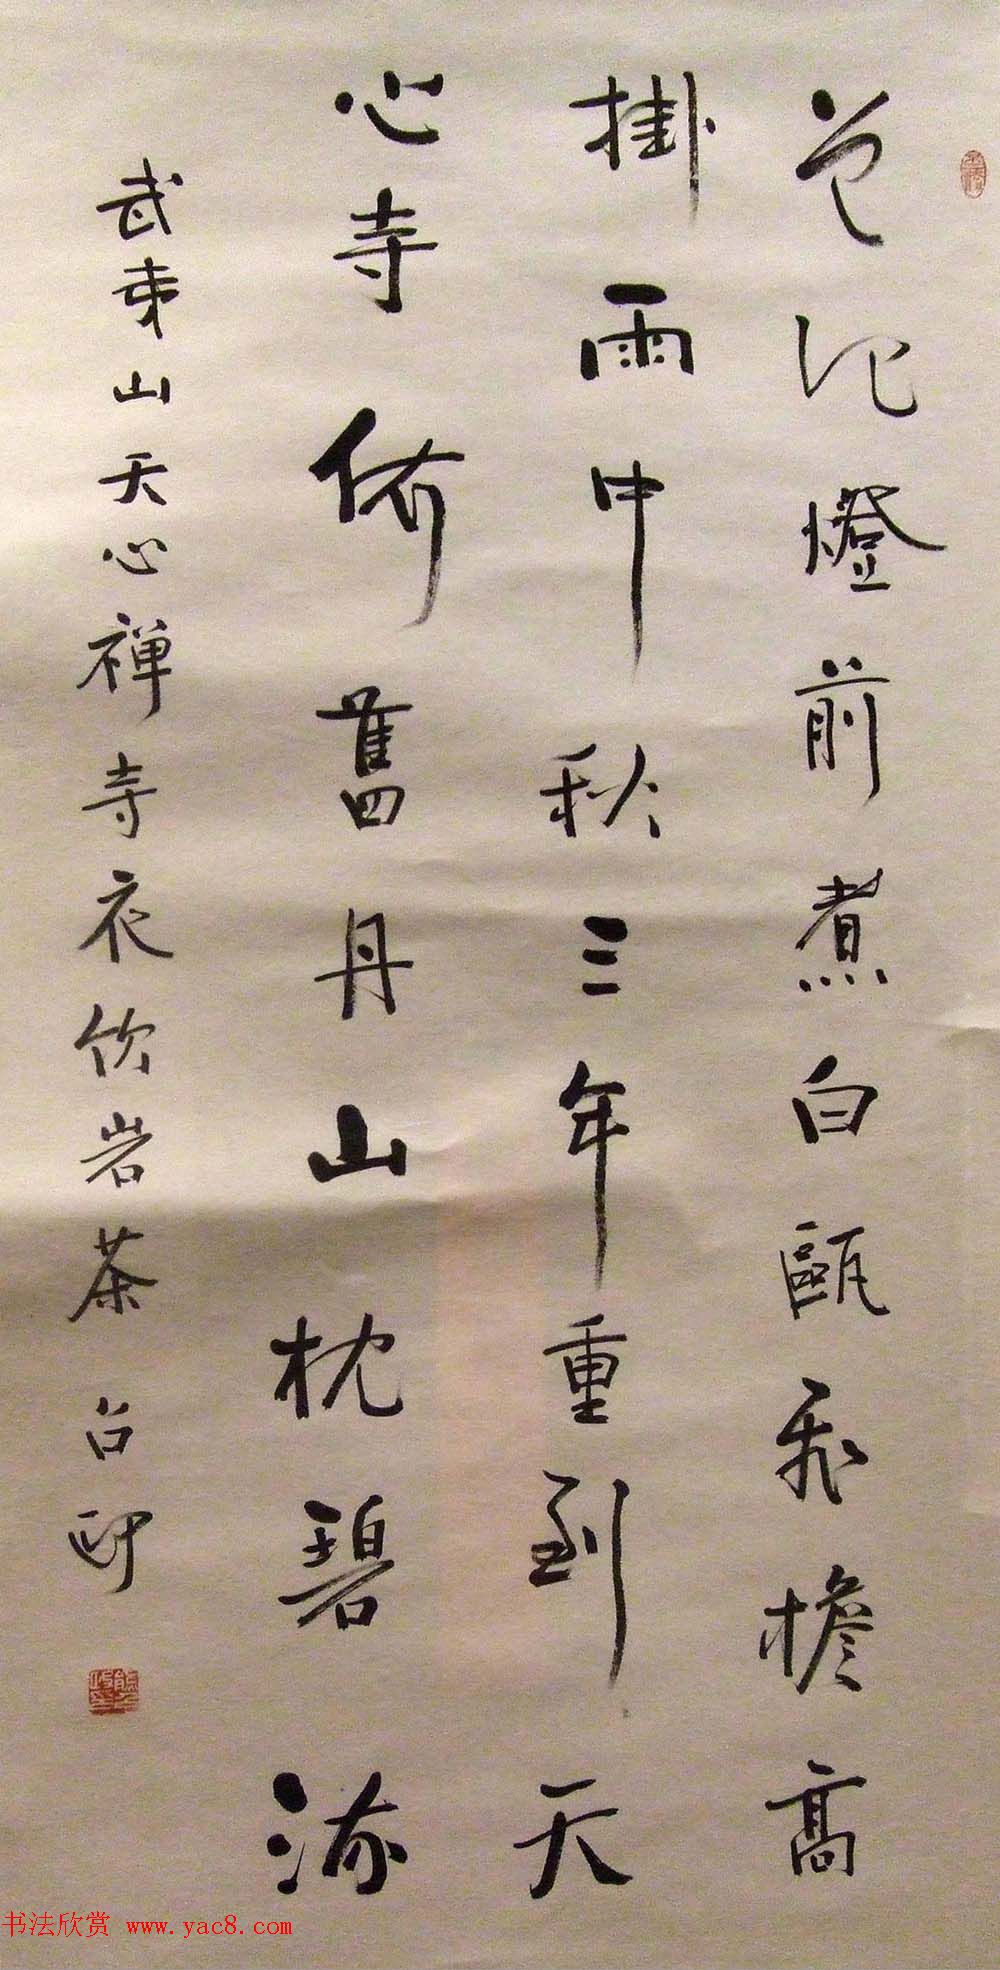 曾記燈前煮白甌飛檐高
掛雨中秋三年重到天
心寺依舊丹山枕碧流
武夷山天心禪寺夜飲岩茶 台印
书法欣赏 www.yac8.com